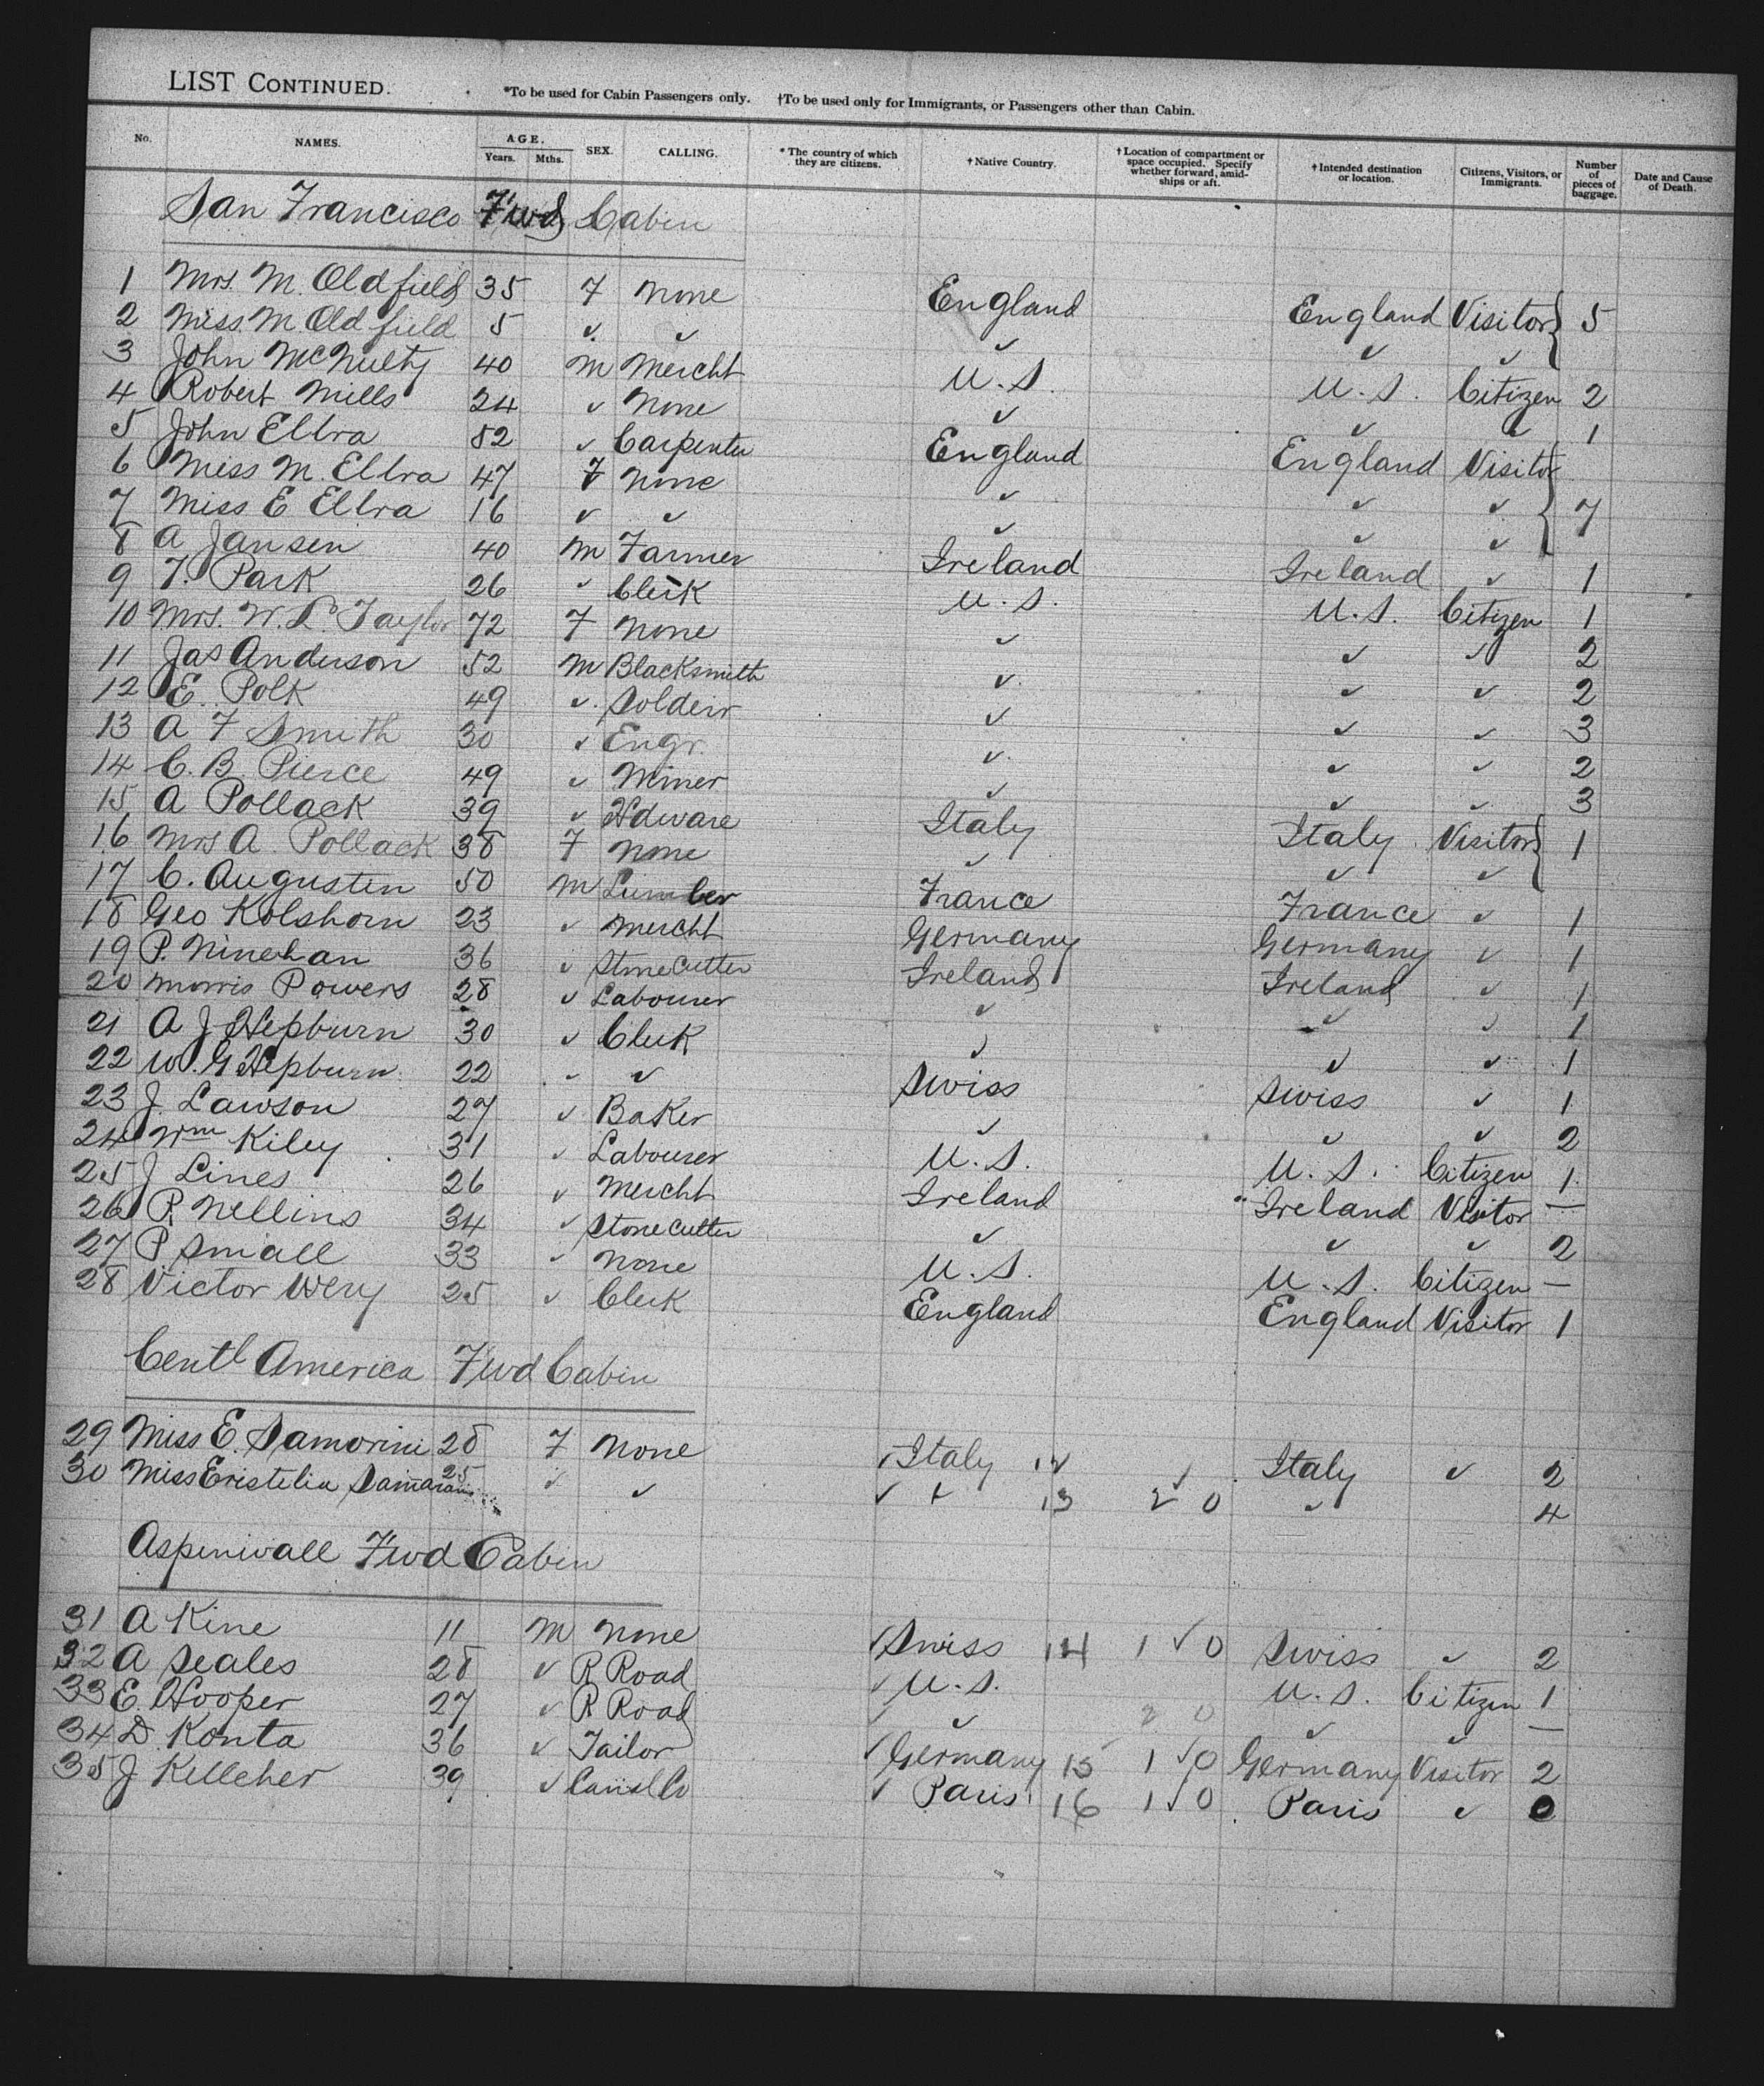 LIST CONTINUED.
*To be used for Cabin Passengers only. †To be used only for Immigrants, or Passengers other than Cabin.
No. NAMES. AGE. Years. Mths. SEX. CALLING. * The country of which they are citizens. † Native Country. † Location of compartment or space occupied. Specify whether forward, amidships or aft. † Intended destination or location. Citizens, Visitors, or Immigrants. Number of pieces of baggage. Date and Cause of Death.
San Francisco Fwd Cabin
1 Mrs. M. Oldfield 35 F None England England Visitor } 5
2 Miss M. Oldfield 5 ✓ ✓ ✓ ✓ ✓
3 John McNulty 40 M Mercht U.S. U.S. Citizen 2
4 Robert Mills 24 ✓ None ✓ ✓ ✓ 1
5 John Ellva 52 ✓ Carpenter England England Visitor
6 Miss M. Ellva 47 F None ✓ ✓ ✓ } 7
7 Miss E Ellva 16 ✓ ✓ ✓ ✓ ✓
8 A Jansen 40 M Farmer Ireland Ireland ✓ 1
9 T. Park 26 ✓ Clerk U.S. U.S. Citizen 1
10 Mrs. W. L. Taylor 72 F None ✓ ✓ ✓ 2
11 Jas Anderson 52 M Blacksmith ✓ ✓ ✓ 2
12 E. Polk 49 ✓ Soldeir ✓ ✓ ✓ 3
13 A F Smith 30 ✓ Engr. ✓ ✓ ✓ 2
14 C. B. Pierce 49 ✓ Miner ✓ ✓ ✓ 3
15 A Pollack 39 ✓ Hdware Italy Italy Visitor } 1
16 Mrs A. Pollack 38 F None ✓ ✓ ✓
17 C. Augustin 50 M Lumber France France ✓ 1
18 Geo Kolshorn 23 ✓ Mercht Germany Germany ✓ 1
19 P. Ninehan 36 ✓ Stonecutter Ireland Ireland ✓ 1
20 Morris Powers 28 ✓ Labourer ✓ ✓ ✓ 1
21 A J Hepburn 30 ✓ Clerk ✓ ✓ ✓ 1
22 W. G Hepburn 22 ✓ ✓ Swiss Swiss ✓ 1
23 J. Lawson 27 ✓ Baker ✓ ✓ ✓ 2
24 Wm Kiley 31 ✓ Labourer U.S. U.S. Citizen 1
25 J Lines 26 ✓ Mercht Ireland Ireland Visitor —
26 R. Nellins 34 ✓ Stonecutter ✓ ✓ ✓ 2
27 P Small 33 ✓ None U.S. U.S. Citizen —
28 Victor Wery 25 ✓ Clerk England England Visitor 1
Centl America Fwd Cabin
29 Miss E. Samorini 28 F None ✓ Italy 12 ✓ Italy ✓ 2
30 Miss Eristelia 25 ✓ ✓ ✓ ✓ 13 2 0 ✓ 4
Aspinwall Fwd Cabin
31 A Kine 11 M None ✓ Swiss 14 1 ✓ 0 Swiss ✓ 2
32 A Seales 28 ✓ R Road ✓ U.S. U.S. Citizen 1
33 E. Hooper 27 ✓ R Road ✓ ✓ 2 0 ✓ ✓ —
34 D. Konta 36 ✓ Tailor ✓ Germany 15 1 ✓ 0 Germany Visitor 2
35 J Kelleher 39 ✓ Canal Co ✓ Paris 16 1 ✓ 0 Paris ✓ 0